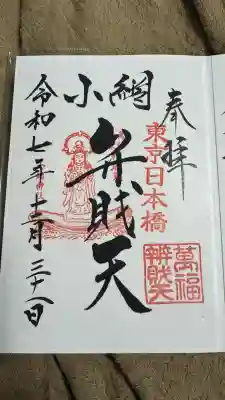 奉拝
東京日本橋
小網
弁財天
萬福
辨財天
令和七年十二月二十八日